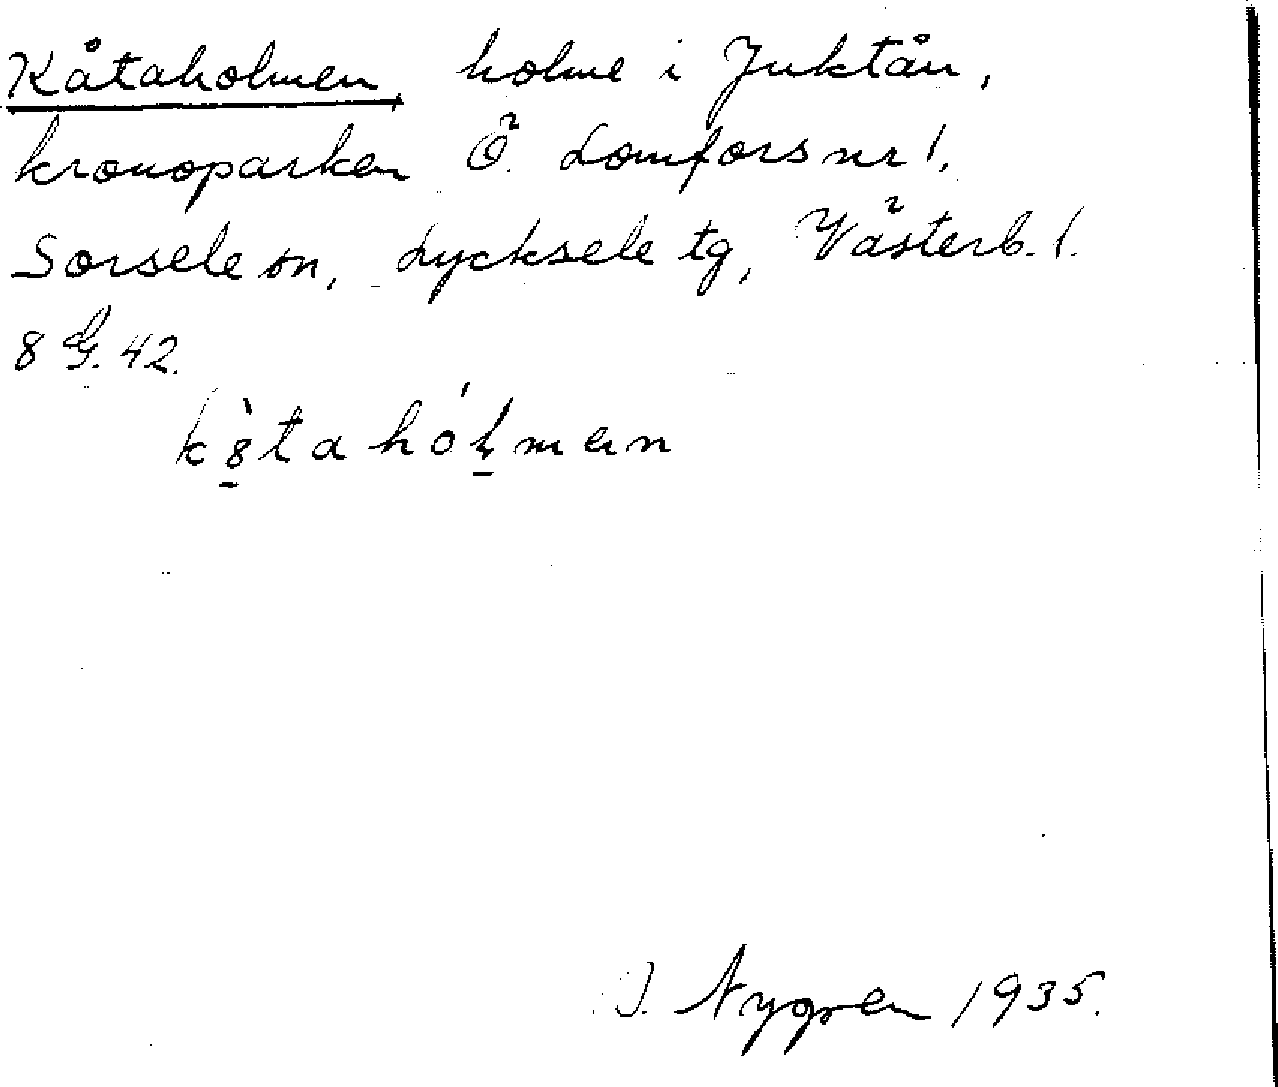 Kåtaholmen, holme i Juktån,
kronoparken Ö. Lomfors nr 1.
Sorsele sn, Lycksele tg, Västerb. l.
8 G. 42.
k8̱̀tahóḻmən
J. Nygren 1935.